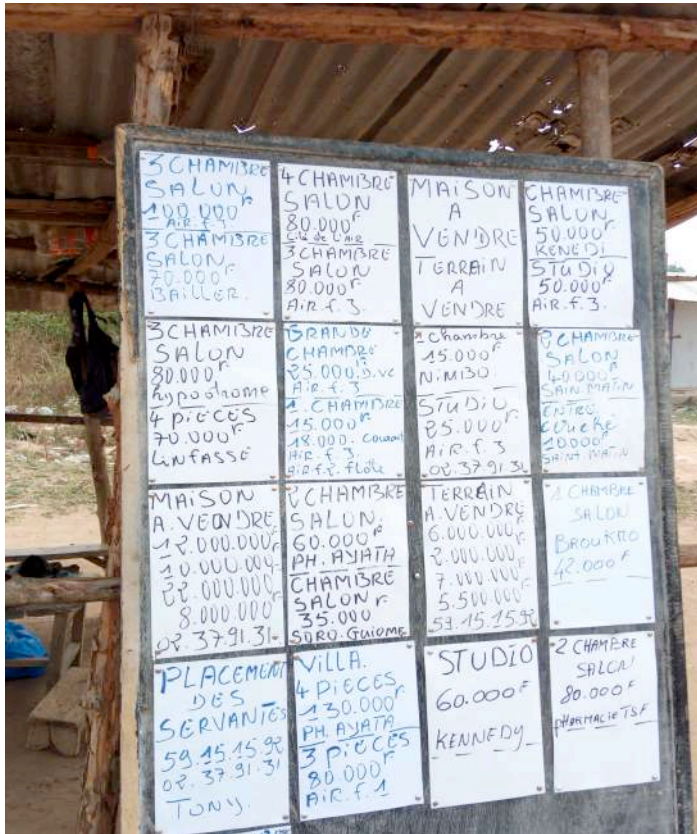 3 CHAMBRE
SALON
100.000F
AIR.F.3
3 CHAMBRE
SALON
70.000F
BAILLER.
4 CHAMBRE
SALON
80.000F
Cité de L'AIR
3 CHAMBRE
SALON
80.000F
AIR.F.3.
MAISON
A
VENDRE
TERRAIN
A
VENDRE
CHAMBRE
SALON
50.000F
KENEDI
STUDIO
50.000F
AIR.F.3.
3 CHAMBRE
SALON
80.000F
hypodrome
4 PIECES
70.000F
LINFASSE
GRANDE
CHAMBRE
25.000F
AIR.F.3
1. CHAMBRE
15.000F
18.000. courant
AIR.F.3
AIR.F.2. flole
1 chambre
15.000F
NiMBO.
STUDIO
25.000F
AIR.F.3
02.37.91.31
2 CHAMBRE
SALON
40.000F
SAIN MATIN
ENTRE
COUCHE
10.000F
SAINT MATIN
MAISON
A.VENDRE
12.000.000F
10.000.000F
22.000.000F
8.000.000F
02.37.91.31
2 CHAMBRE
SALON
60.000F
PH. AYATA
CHAMBRE
SALON
35.000F
SORO GUIOME
TERRAIN
A.VENDRE
6.000.000F
2.000.000F
7.000.000F
5.500.000F
59.15.15.92
1 CHAMBRE
SALON
BROUKRO
42.000F
PLACEMENT
DES
SERVANTES
59.15.15.92
02.37.91.31
TONY.
VILLA.
4 PIECES
130.000F
PH. AYATA
3 PIECES
80.000F
AIR.F.1
STUDIO
60.000F
KENNEDY
2 CHAMBRE
SALON
80.000F
PHARMACIE TSF